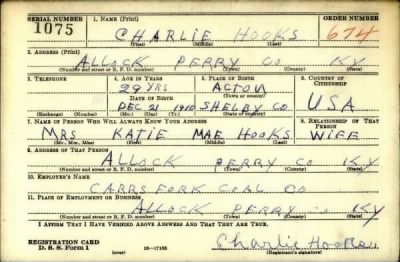 SERIAL NUMBER 1. NAME (Print) ORDER NUMBER
1075 CHARLIE HOOKS 674
(First) (Middle) (Last)
2. ADDRESS (Print)
ALLOCK PERRY CO KY
(Number and street or R. F. D. number) (Town) (County) (State)
3. TELEPHONE 4. AGE IN YEARS 5. PLACE OF BIRTH 6. COUNTRY OF CITIZENSHIP
29 YRS ACTON
(Town or county)
DATE OF BIRTH
DEC 21 1910 SHELBY CO USA
(Exchange) (Number) (Mo.) (Day) (Yr.) (State or country)
7. NAME OF PERSON WHO WILL ALWAYS KNOW YOUR ADDRESS 8. RELATIONSHIP OF THAT PERSON
MRS KATIE MAE HOOKS WIFE
(Mr., Mrs., Miss) (First) (Middle) (Last)
9. ADDRESS OF THAT PERSON
ALLOCK PERRY CO KY
(Number and street or R. F. D. number) (Town) (County) (State)
10. EMPLOYER'S NAME
CARRS FORK COAL CO
11. PLACE OF EMPLOYMENT OR BUSINESS
ALLOCK PERRY CO KY
(Number and street or R. F. D. number) (Town) (County) (State)
I AFFIRM THAT I HAVE VERIFIED ABOVE ANSWERS AND THAT THEY ARE TRUE.
REGISTRATION CARD
D. S. S. Form 1 (over) 16-17105 Charlie Hooks
(Registrant's signature)